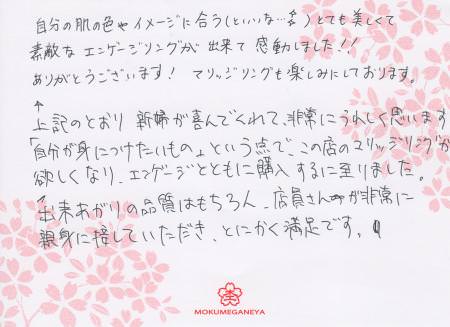 自分の肌の色やイメージに合う(といいな…)とても美しくて
素敵なエンゲージリングが出来て感動しました!!
ありがとうございます! マリッジリングも楽しみにしております。
↑
上記のとおり 新婦が喜んでくれて、非常にうれしく思います
「自分が身につけたいもの」という点で、この店のマリッジリングが
欲しくなり、エンゲージとともに購入するに至りました。
出来あがりの品質はもちろん、店員さんが非常に
親身に接していただき、とにかく満足です。
MOKUMEGANEYA